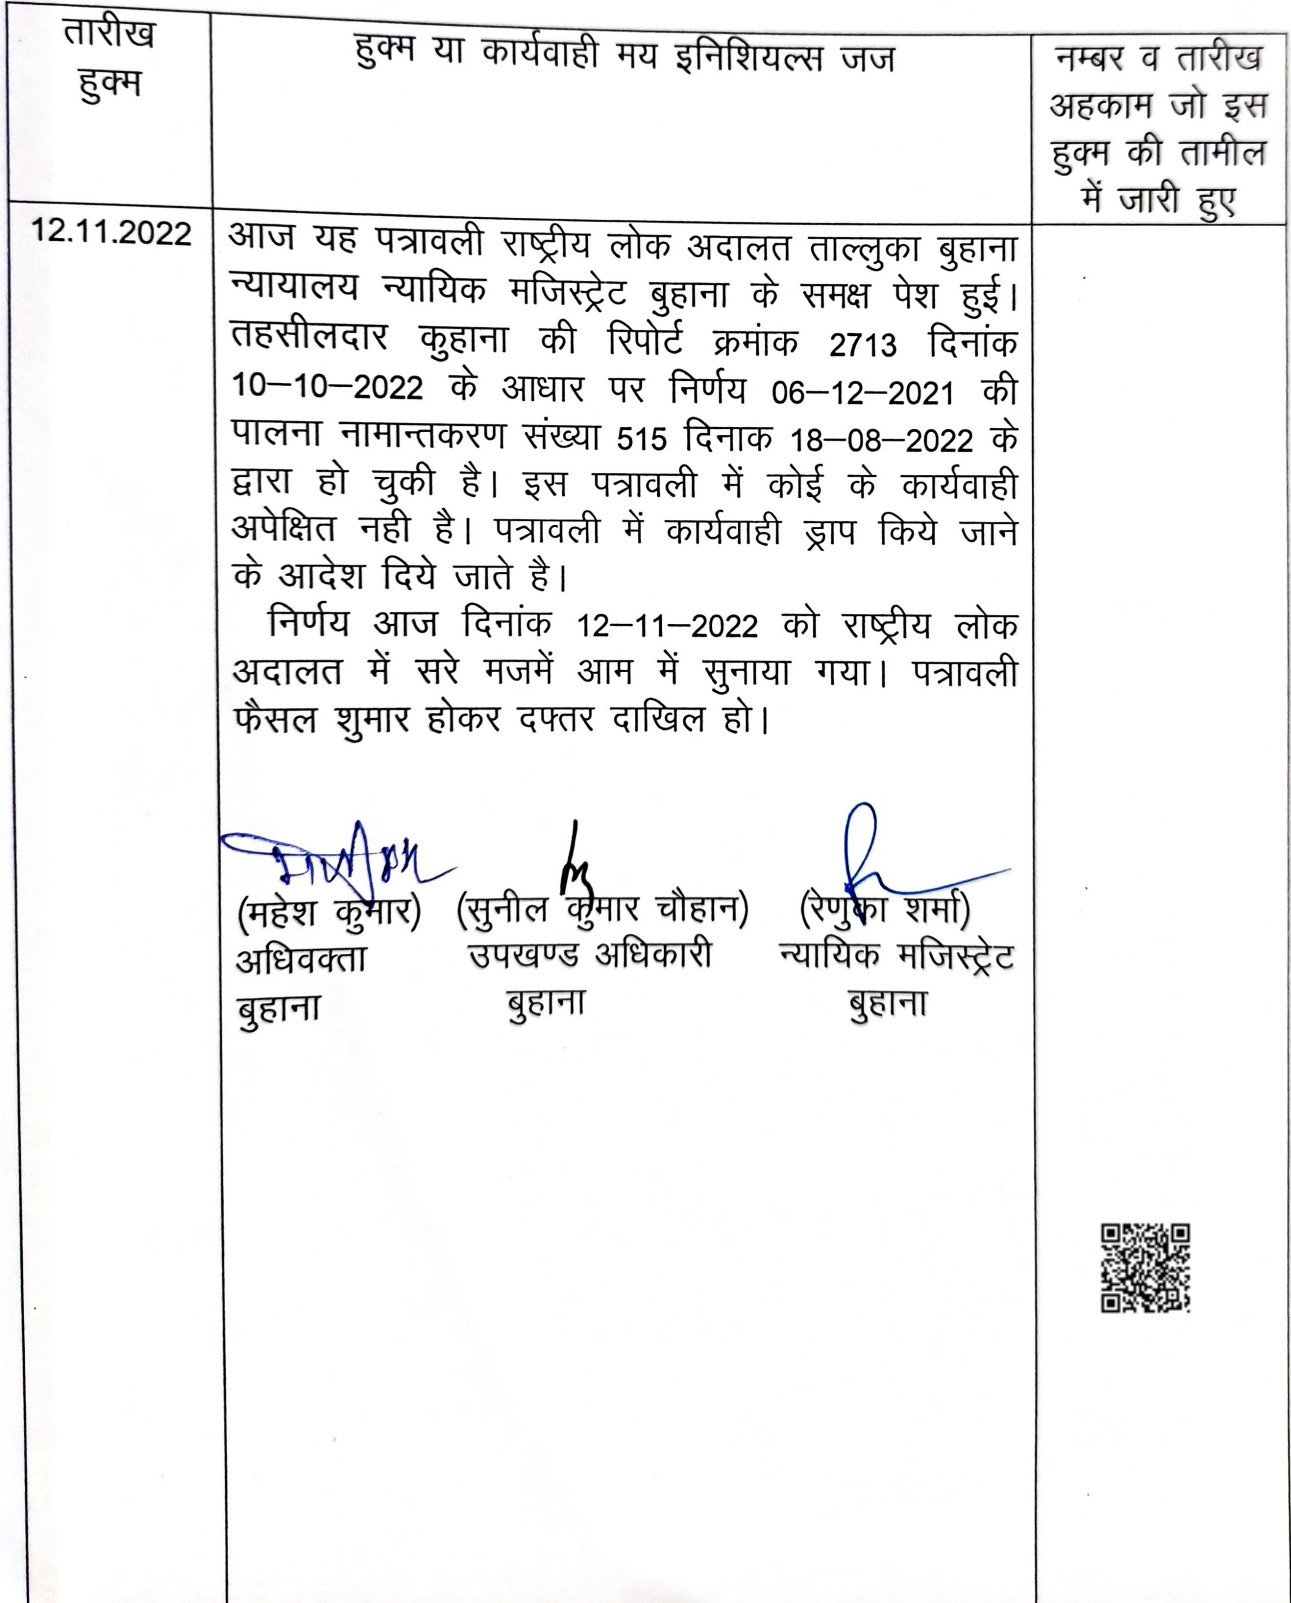 तारीख
हुक्म
हुक्म या कार्यवाही मय इनिशियल्स जज
नम्बर व तारीख
अहकाम जो इस
हुक्म की तामील
में जारी हुए
12.11.2022
आज यह पत्रावली राष्ट्रीय लोक अदालत ताल्लुका बुहाना
न्यायालय न्यायिक मजिस्ट्रेट बुहाना के समक्ष पेश हुई।
तहसीलदार कुहाना की रिपोर्ट क्रमांक 2713 दिनांक
10–10–2022 के आधार पर निर्णय 06–12–2021 की
पालना नामान्तकरण संख्या 515 दिनाक 18–08–2022 के
द्वारा हो चुकी है। इस पत्रावली में कोई के कार्यवाही
अपेक्षित नही है। पत्रावली में कार्यवाही ड्राप किये जाने
के आदेश दिये जाते है।
निर्णय आज दिनांक 12–11–2022 को राष्ट्रीय लोक
अदालत में सरे मजमें आम में सुनाया गया। पत्रावली
फैसल शुमार होकर दफ्तर दाखिल हो।
(महेश कुमार) (सुनील कुमार चौहान) (रेणुका शर्मा)
अधिवक्ता उपखण्ड अधिकारी न्यायिक मजिस्ट्रेट
बुहाना बुहाना बुहाना